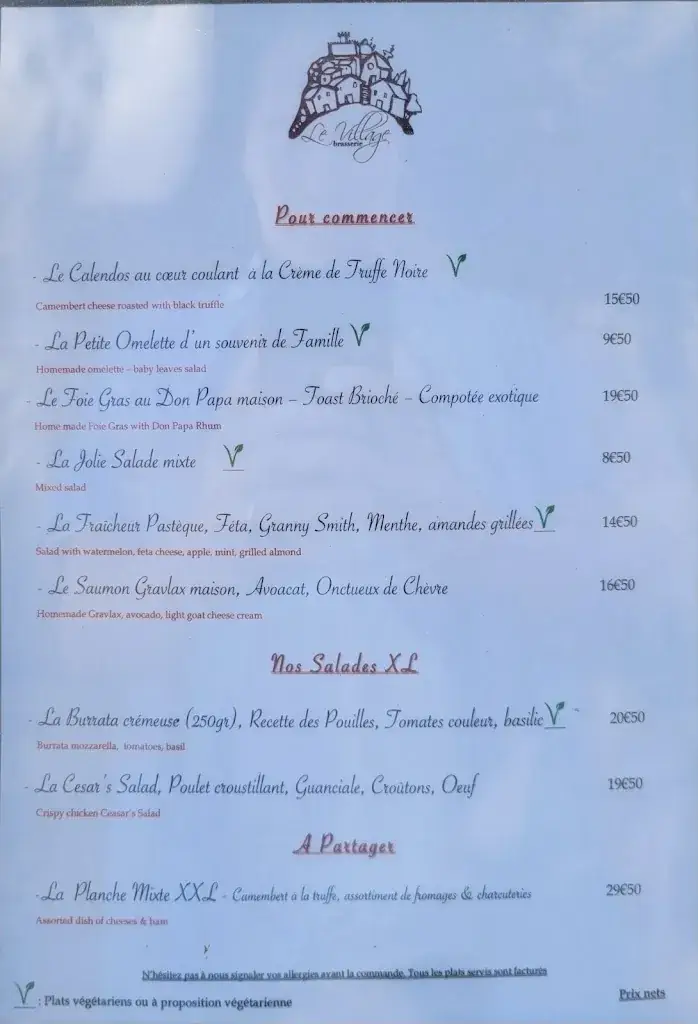 Le Village
brasserie
Pour commencer
- Le Calendos au cœur coulant à la Crème de Truffe Noire V
Camembert cheese roasted with black truffle 15€50
- La Petite Omelette d'un souvenir de Famille V 9€50
Homemade omelette – baby leaves salad
- Le Foie Gras au Don Papa maison – Toast Brioché – Compotée exotique 19€50
Home made Foie Gras with Don Papa Rhum
- La Jolie Salade mixte V 8€50
Mixed salad
- La Fraîcheur Pastèque, Féta, Granny Smith, Menthe, amandes grillées V 14€50
Salad with watermelon, feta cheese, apple, mint, grilled almond
- Le Saumon Gravlax maison, Avoacat, Onctueux de Chèvre 16€50
Homemade Gravlax, avocado, light goat cheese cream
Nos Salades XL
- La Burrata crémeuse (250gr), Recette des Pouilles, Tomates couleur, basilic V 20€50
Burrata mozzarella, tomatoes, basil
- La Cesar's Salad, Poulet croustillant, Guanciale, Croûtons, Oeuf 19€50
Crispy chicken Ceasar's Salad
A Partager
- La Planche Mixte XXL - Camembert à la truffe, assortiment de fromages & charcuteries 29€50
Assorted dish of cheeses & ham
N'hésitez pas à nous signaler vos allergies avant la commande. Tous les plats servis sont facturés
V : Plats végétariens ou à proposition végétarienne
Prix nets